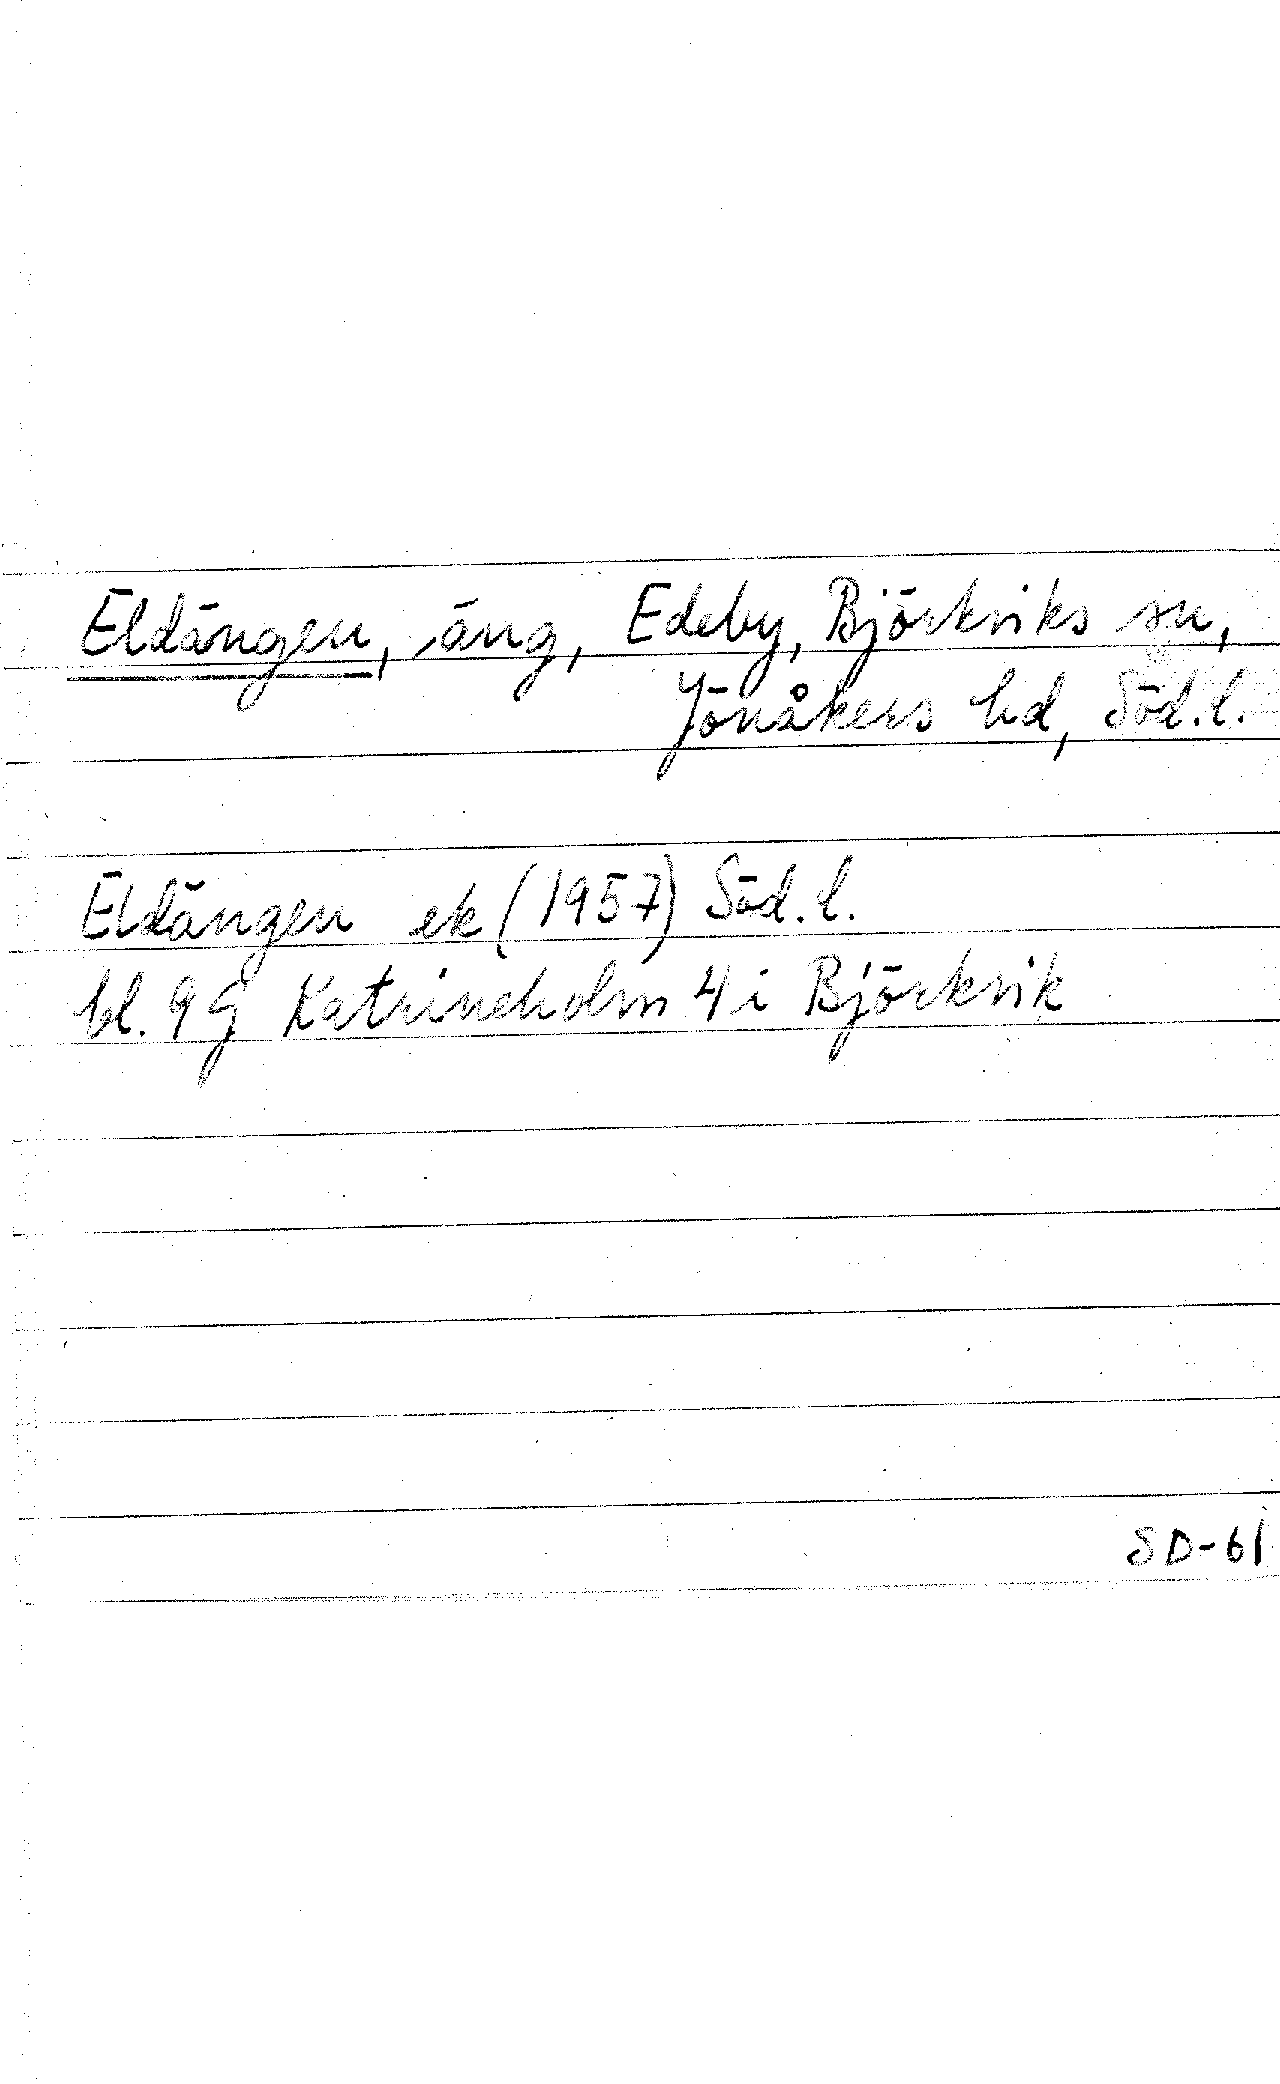 Eldängen, äng, Edeby, Björkviks sn,
Jönåkers hd, Söd.l.
Eldängen ek (1957) Söd.l.
bl. 9G Katrineholm 4i Björkvik
SD-61